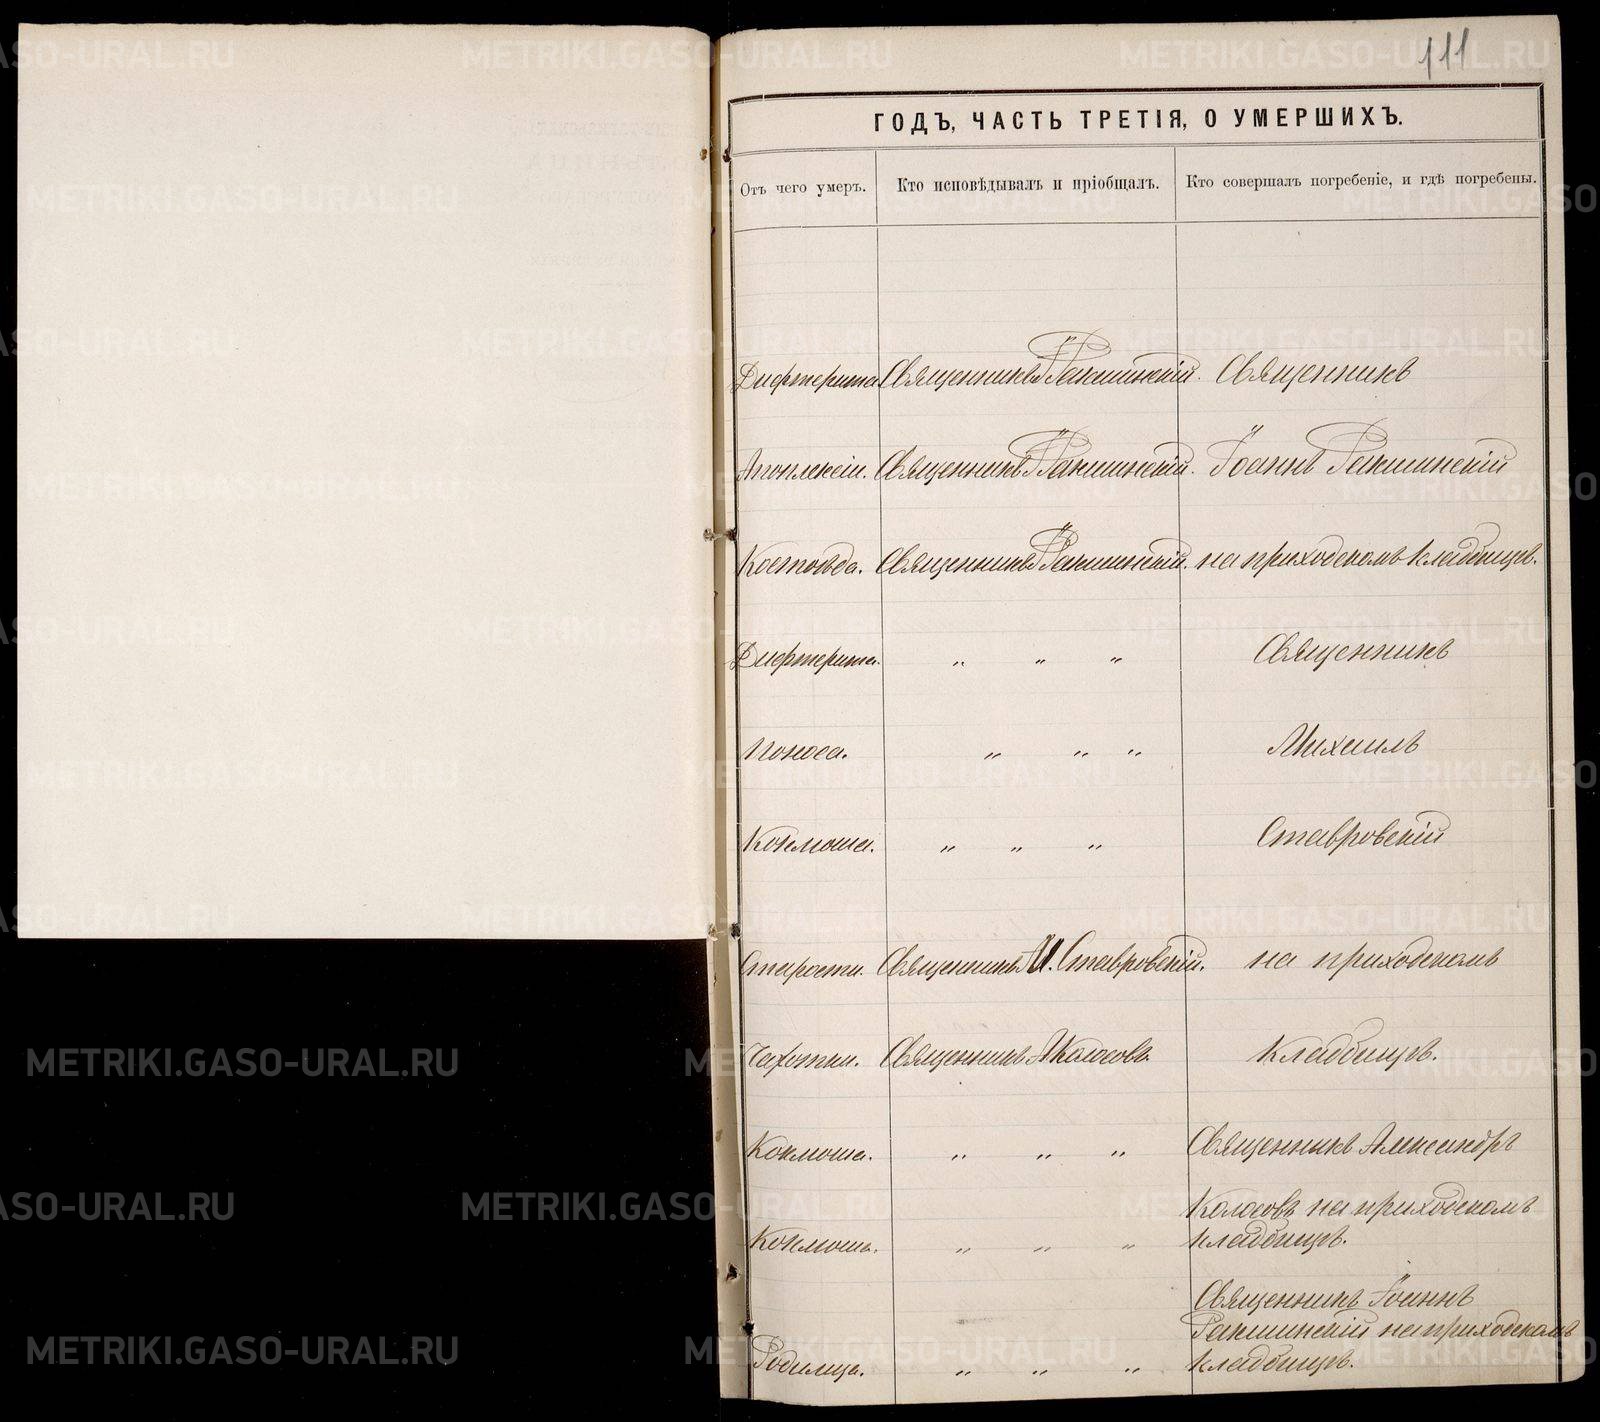 111
ГОДЪ, ЧАСТЬ ТРЕТІЯ, О УМЕРШИХЪ.
Отъ чего умеръ. Кто исповѣдывалъ и пріобщалъ. Кто совершалъ погребеніе, и гдѣ погребены.
Дифтерита Священникъ І Ракшинскій. Священникъ
Апоплексіи. Священникъ І Ракшинскій. Іоаннъ Ракшинскій
Костоѣда. Священникъ І Ракшинскій. на приходскомъ кладбищѣ.
Дифтерита. " " " Священникъ
Поноса. " " " Михаилъ
Коклюша. " " " Ставровскій
Старости. Священникъ М. Ставровскій. на приходскомъ
Чахотки. Священникъ А Колосовъ. кладбищѣ.
Коклюша. " " " Священникъ Александръ
Колосовъ на приходскомъ
Коклюша. " " " кладбищѣ.
Священникъ Іоаннъ
Ракшинскій на приходскомъ
Родимца. " " " кладбищѣ.
METRIKI.GASO-URAL.RU